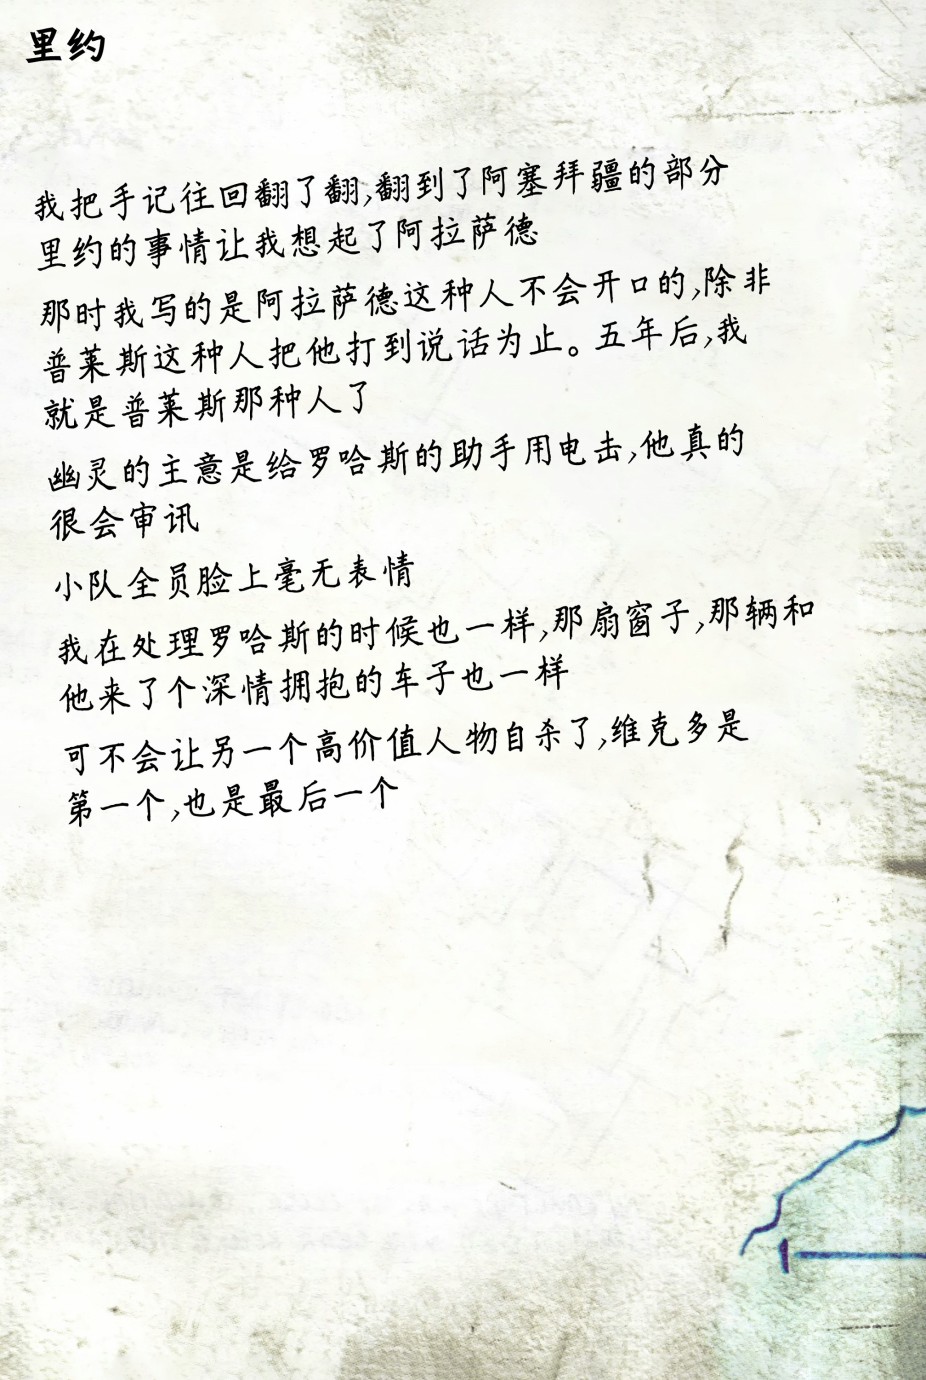 里约
我把手记往回翻了翻,翻到了阿塞拜疆的部分
里约的事情让我想起了阿拉萨德
那时我写的是阿拉萨德这种人不会开口的,除非
普莱斯这种人把他打到说话为止。五年后,我
就是普莱斯那种人了
幽灵的主意是给罗哈斯的助手用电击,他真的
很会审讯
小队全员脸上毫无表情
我在处理罗哈斯的时候也一样,那扇窗子,那辆和
他来了个深情拥抱的车子也一样
可不会让另一个高价值人物自杀了,维克多是
第一个,也是最后一个